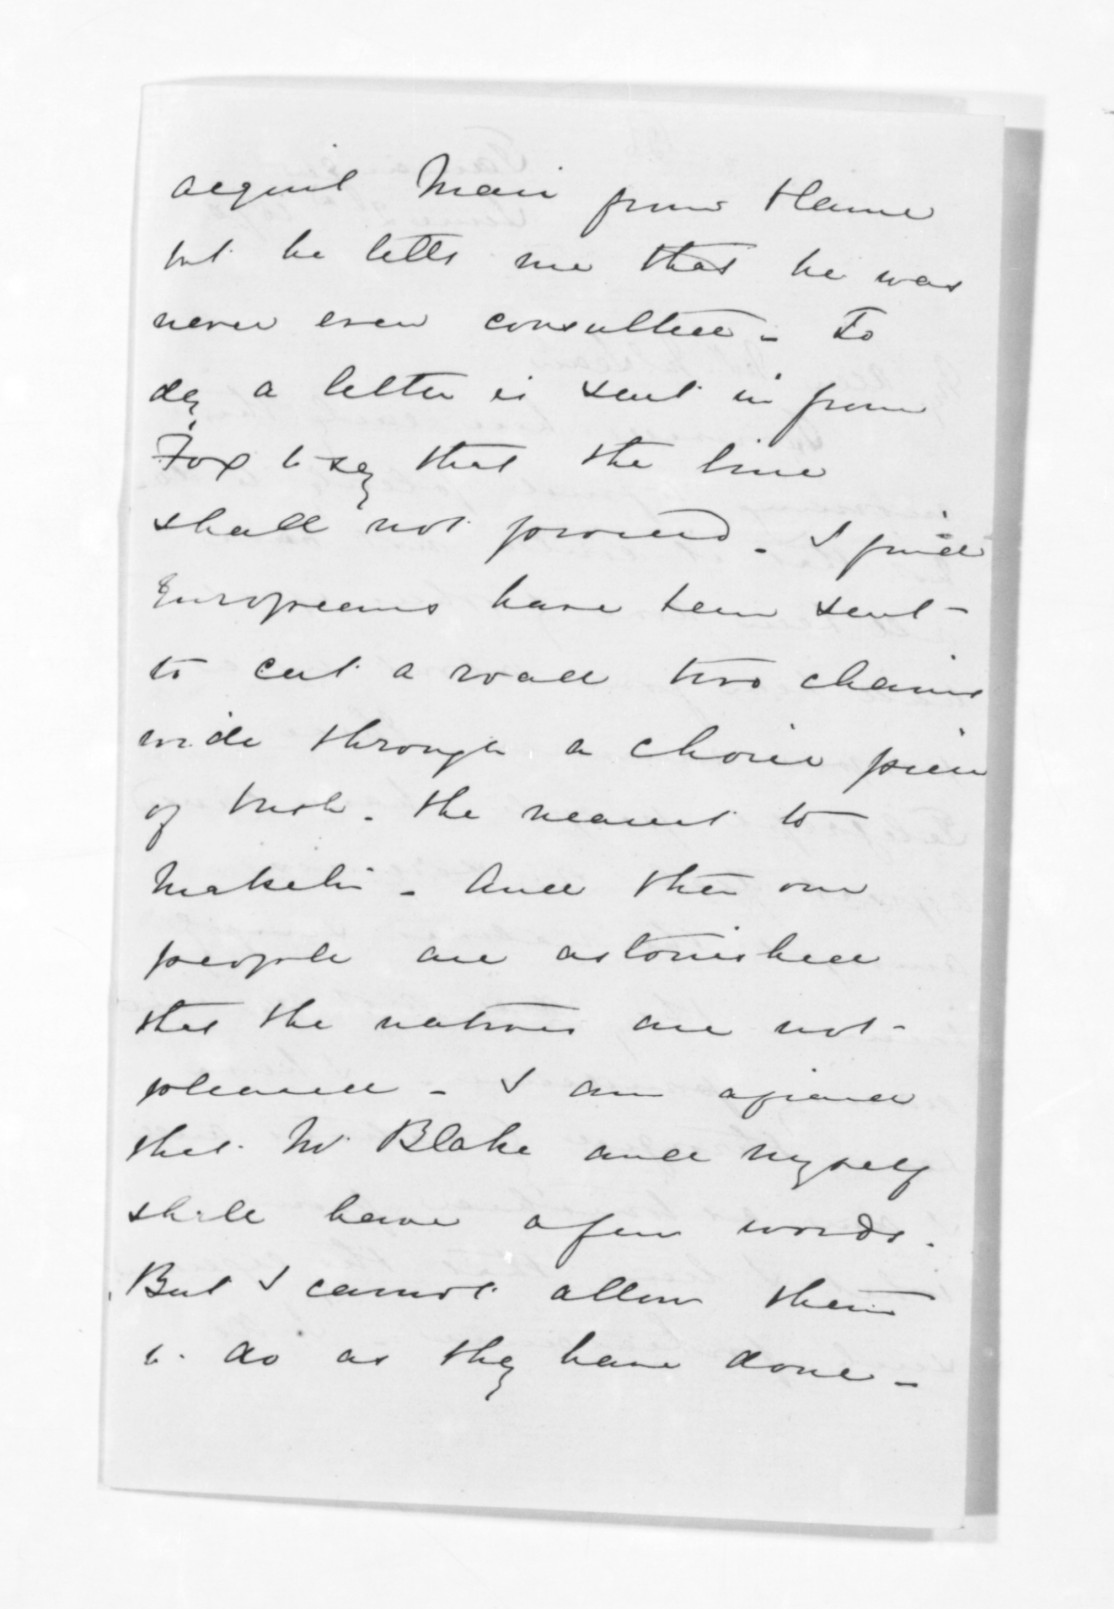 acquit Mair from blame
but he tells me that he was
never even consulted - To
day a letter is sent in from
Fox to say that the line
shall not proceed - I find
Europeans have been sent -
to cut a road two chains
wide through a choice piece
of bush. the nearest to
Maketu - And then our
people are astonished
that the natives are not -
pleased - I am afraid
that Mr Blake and myself
shall have a few words.
But I cannot allow them
to do as they have done -